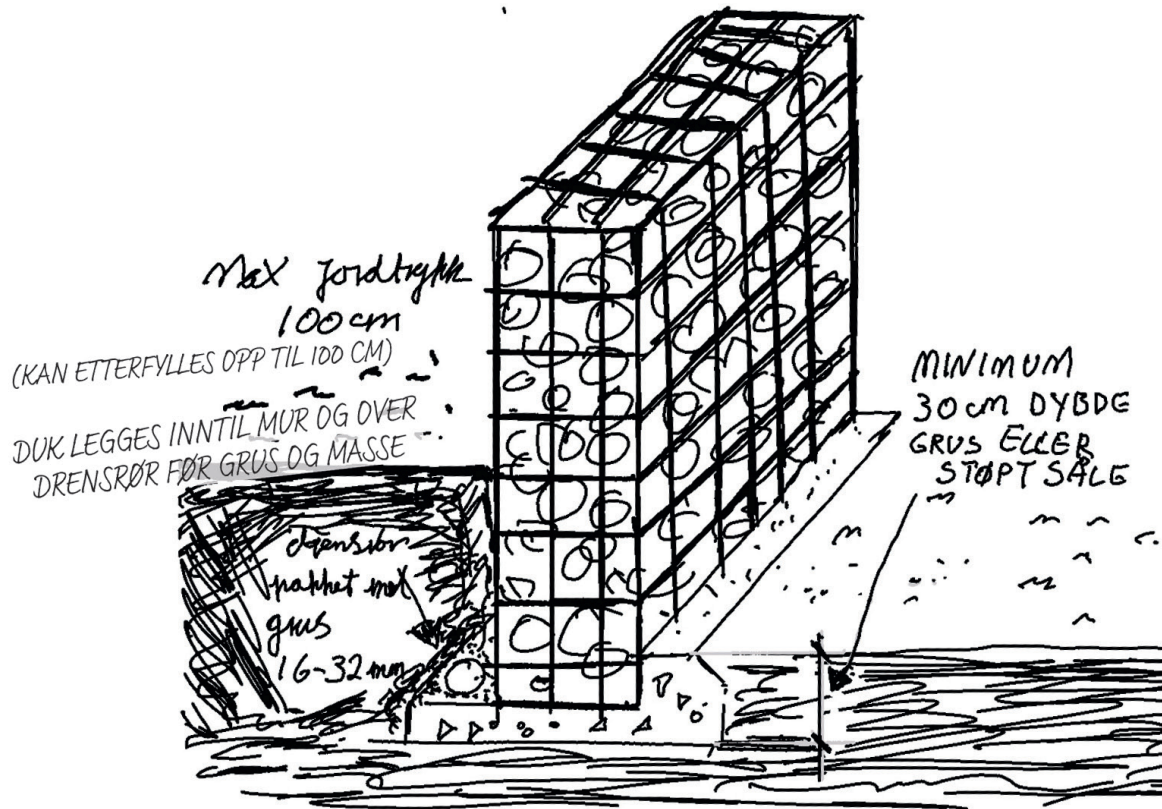 Max jordtrykk
100cm
(KAN ETTERFYLLES OPP TIL 100 CM)
DUK LEGGES INNTIL MUR OG OVER
DRENSRØR FØR GRUS OG MASSE
drensrør
pakket med
grus
16-32mm
MINIMUM
30cm DYBDE
GRUS ELLER
STØPT SÅLE